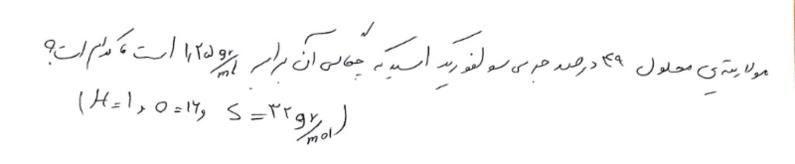 مولاریته‌ی محلول ۴۹ درصد جرمی سولفوریک اسید که چگالی آن برابر ۱٫۲۵ gr/ml است کدام است؟
(H=1, O=16, S=۳۲ gr/mol)